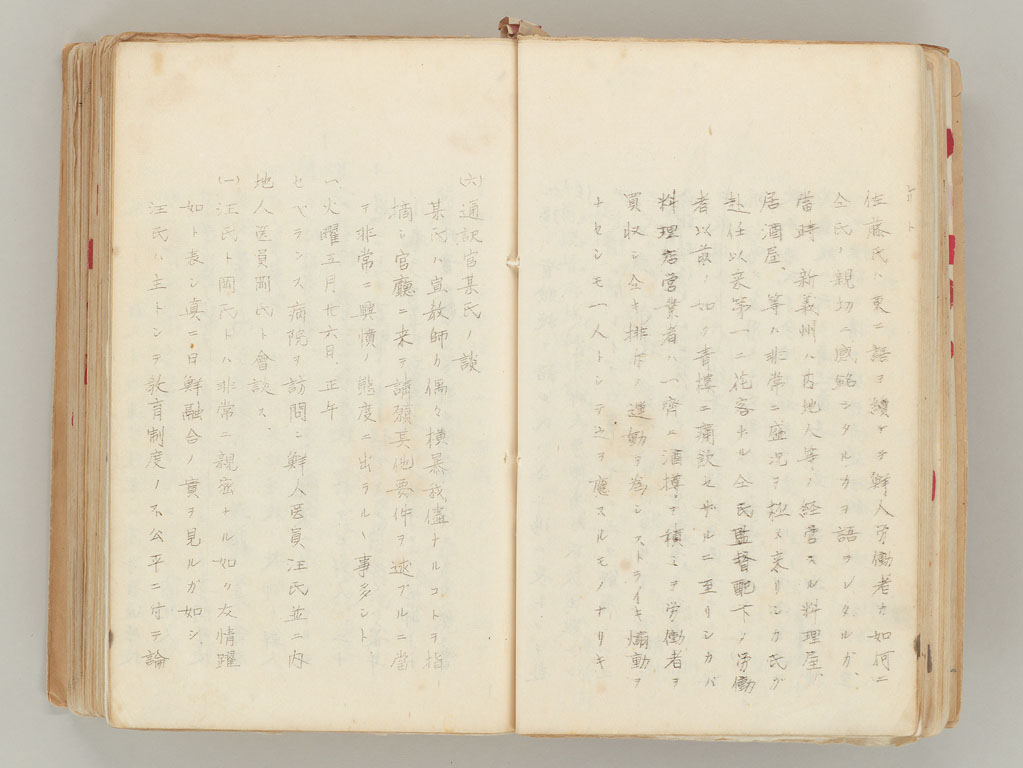 佐藤氏ハ更ニ語ヲ續ケテ鮮人労働者ガ如何ニ
仝氏ノ親切ニ感銘シタルカヲ語ラレタルガ、
當時 新義州ハ内地人等ノ経営ニル料理屋、
居酒屋、等ハ非常ニ盛況ヲ極メ来リシカ氏ガ
赴任以来第一ニ花客ナル仝氏監督配下ノ労働
者以前ノ如ク青樓ニ痛飲セザルニ至リシカバ
料理店営業者ハ一齊ニ酒樽ヲ積ミテ労働者ヲ
買収シ仝キ排斥ノ運動ヲ為シストライキ煽動ヲ
ナセシモ一人トシテ之ヲ應スルモノナリキ
(六)通訳官某氏ノ談
某氏ハ宣教師カ偶々横暴我儘ナルコトヲ指
摘シ官廳ニ来ラ請願其他要件ヲ述ブルニ當
テ非常ニ興憤ノ態度ニ出ラルヽ事多シト
一、火曜五月廿六日、正午
セベランス病院ヲ訪問シ鮮人医員汪氏並ニ内
地人医員岡氏ト會談ス、
(一)汪氏ト岡氏トハ非常ニ親密ナル如ク友情躍
如ト表シ真ニ日鮮融合ノ實ヲ見ルガ如シ、
汪氏ハ主トシテ教育制度ノ不公平ニ付テ論